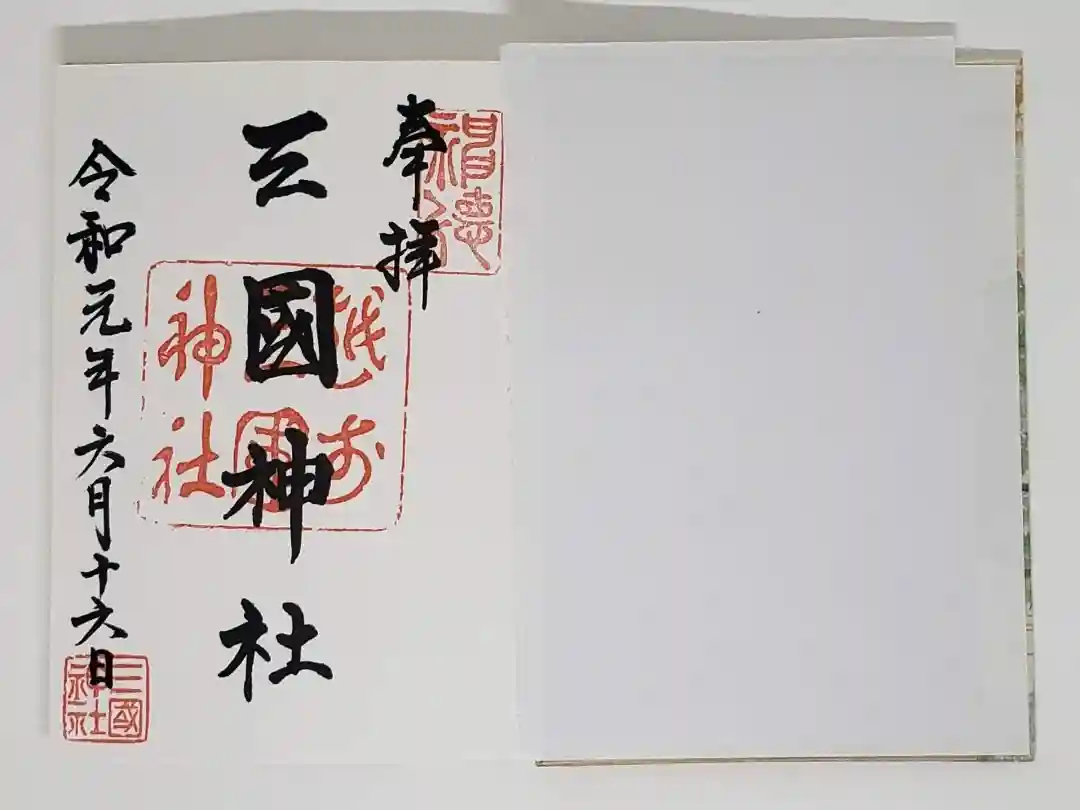 奉拝
三國神社
令和元年六月十六日
越前
神社
三國
神社